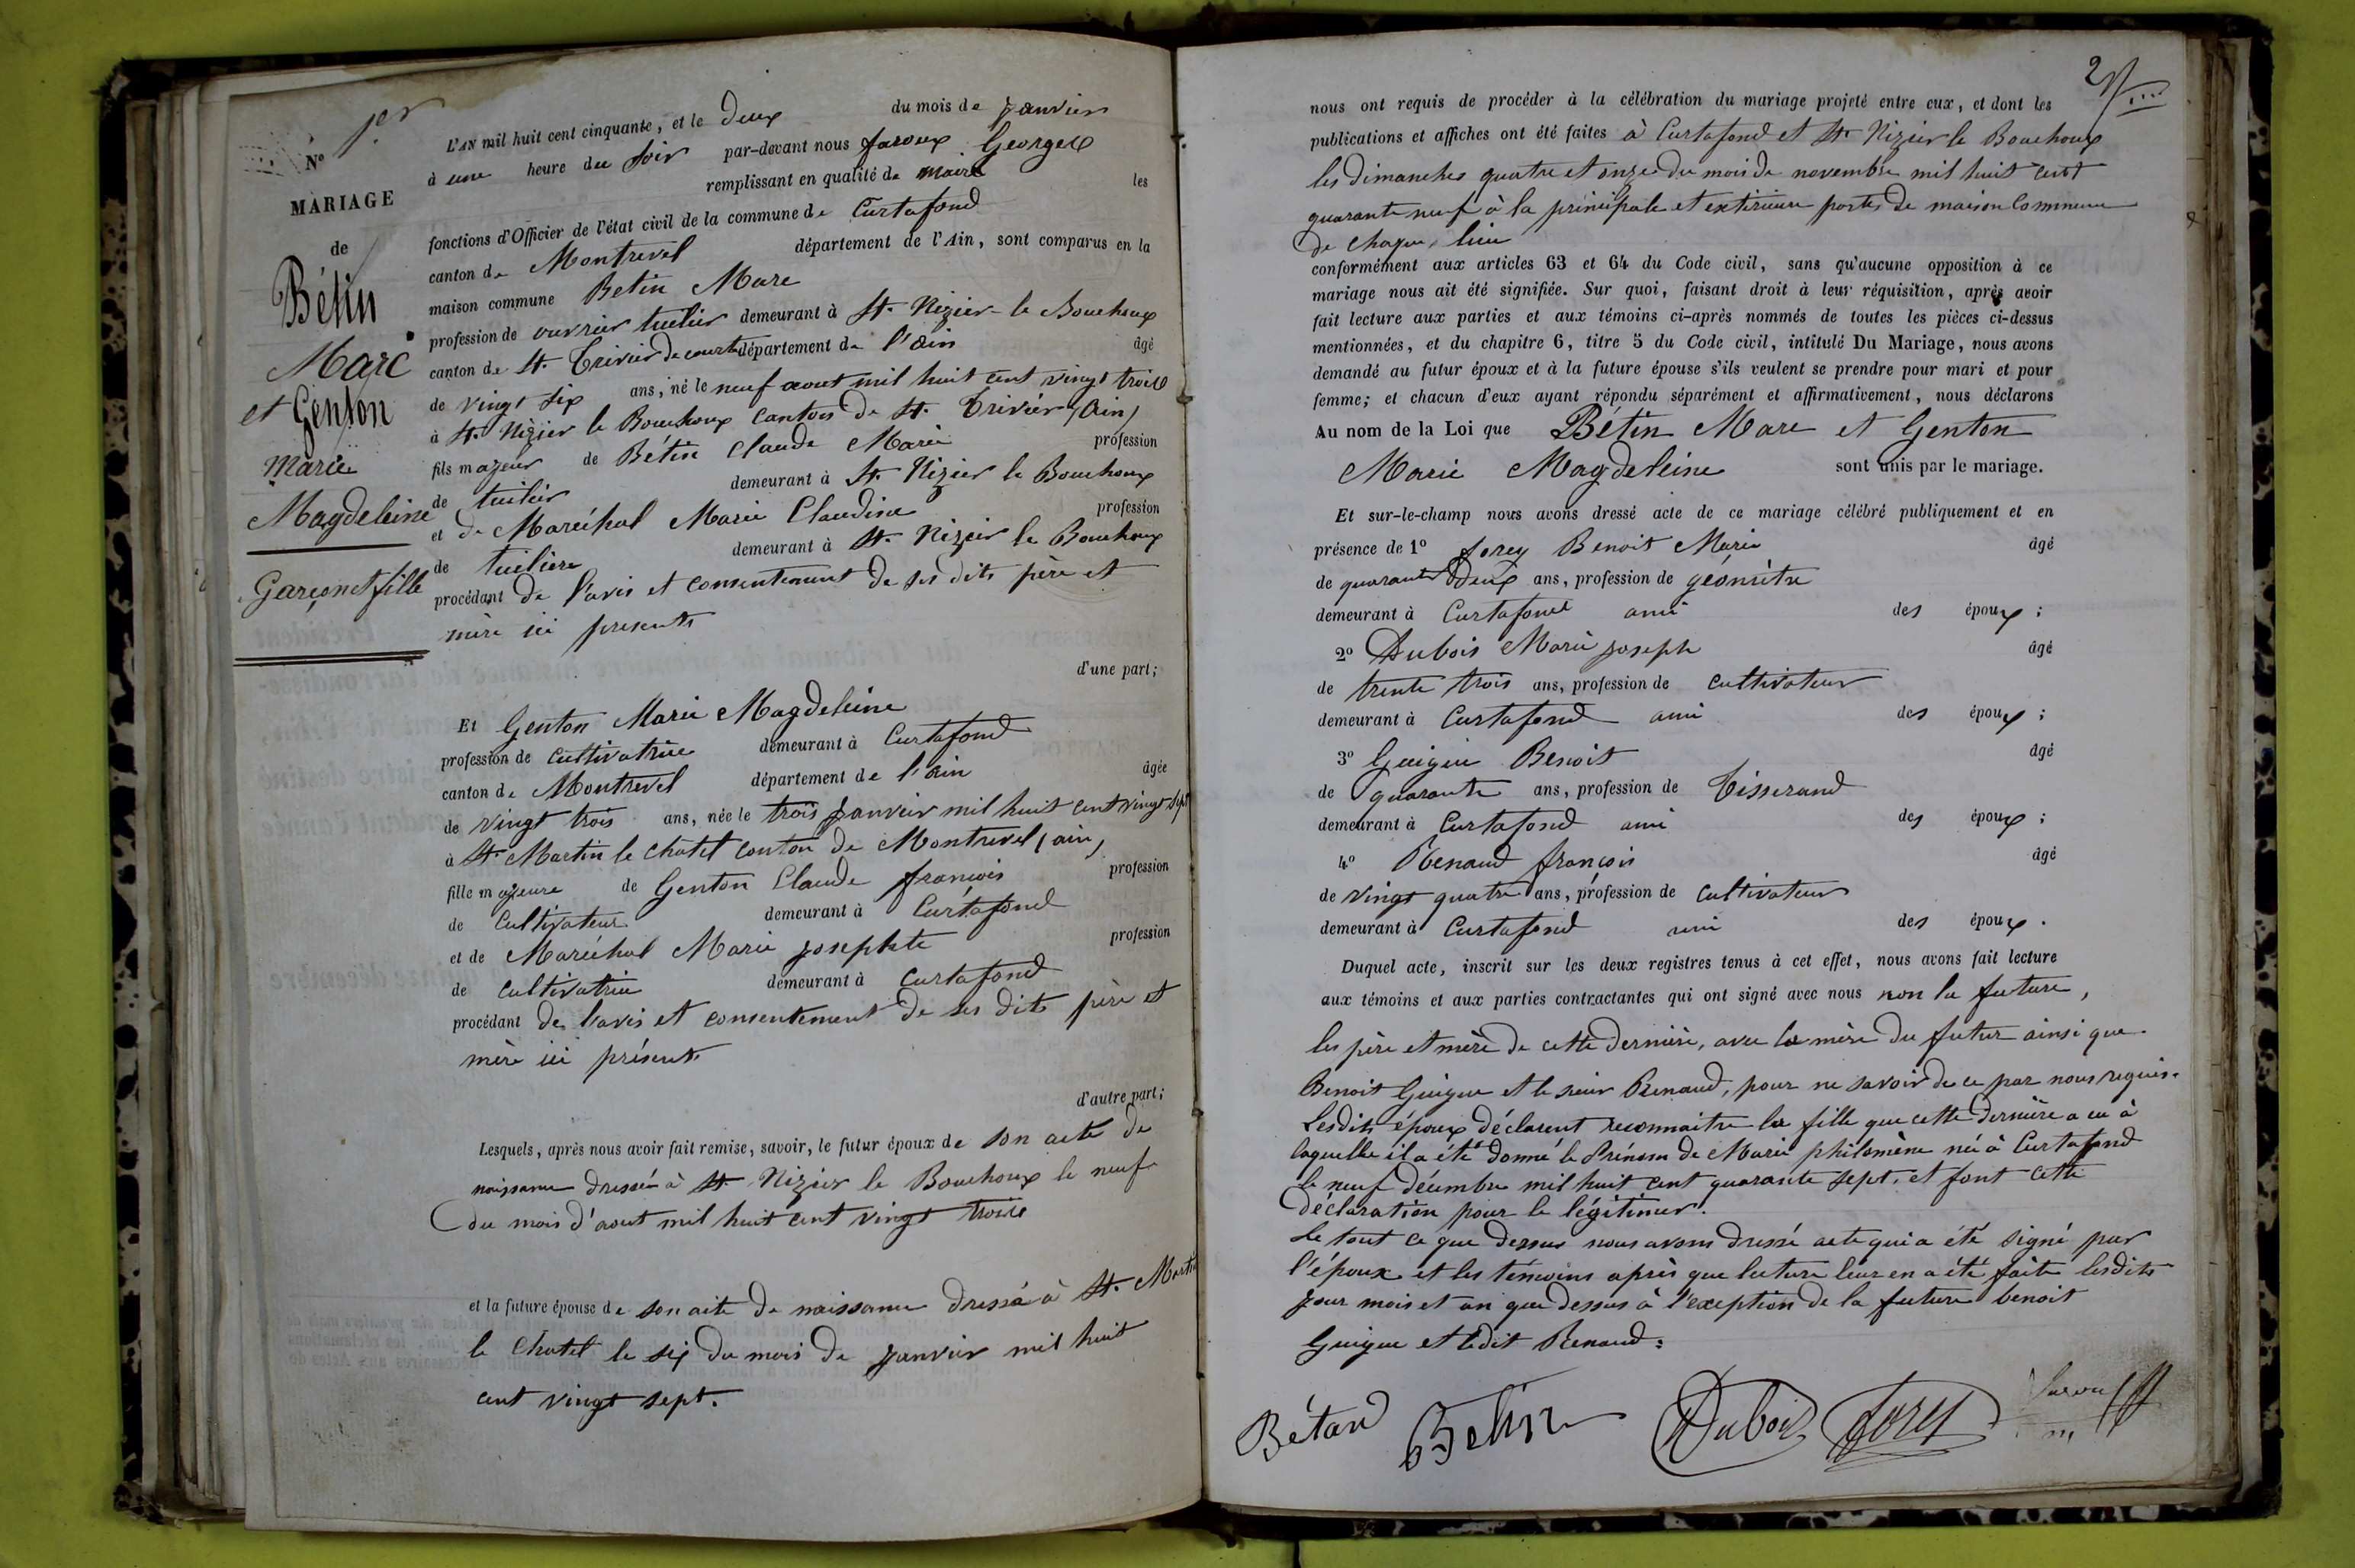 Nº 1er
MARIAGE
de
Bétin
Marc
et Genton
Marie
Magdeleine
Garçon et fille
L'AN mil huit cent cinquante, et le deux du mois de janvier
à une heure du soir par-devant nous Georges
remplissant en qualité de maire les
fonctions d'Officier de l'état civil de la commune de Curtafond
canton de Montrevel département de l'Ain, sont comparus en la
maison commune Betin Marc
profession de ouvrier tuilier demeurant à St. Nizier-le Bouchoux
canton de St. Trivier de courtes département de l'ain âgé
de vingt six ans, né le neuf aout mil huit cent vingt trois
à St. Nizier le Bouchoux canton de St. Trivier (Ain)
fils majeur de Bétin Claude Marie profession
de tuilier demeurant à St. Nizier le Bouchoux
et de Maréchal Marie Claudine profession
de tuilière demeurant à St. Nizier le Bouchoux
procédant de l'avis et consentement de ses dits père et
mère ici presents
d'une part;
Et Genton Marie Magdeleine
profession de cultivatrice demeurant à Curtafond
canton de Montrevel département de l'ain âgée
de vingt trois ans, née le trois janvier mil huit cent vingt sept
à St. Martin le chatel canton de Montrevel (ain)
fille majeure de Genton Claude françois profession
de cultivateur demeurant à Curtafond
et de Maréchal Marie josephte profession
de cultivatrice demeurant à curtafond
procédant de l'avis et consentement de ses dits père et
mère ici présents
d'autre part;
Lesquels, après nous avoir fait remise, savoir, le futur époux de son acte de
naissance dressé à St. Nizier le Bouchoux le neuf
du mois d'aout mil huit cent vingt trois
et la future épouse de son acte de naissance dressé à St. Martin
le Chatel le six du mois de janvier mil huit
cent vingt sept.
2
nous ont requis de procéder à la célébration du mariage projeté entre eux, et dont les
publications et affiches ont été faites à Curtafond et St. Nizier le Bouchoux
les dimanches quatre et onze du mois de novembre mil huit cent
quarante neuf à la principale et extérieure porte de maison commune
de chaque lieu
conformément aux articles 63 et 64 du Code civil, sans qu'aucune opposition à ce
mariage nous ait été signifiée. Sur quoi, faisant droit à leur réquisition, après avoir
fait lecture aux parties et aux témoins ci-après nommés de toutes les pièces ci-dessus
mentionnées, et du chapitre 6, titre 5 du Code civil, intitulé Du Mariage, nous avons
demandé au futur époux et à la future épouse s'ils veulent se prendre pour mari et pour
femme; et chacun d'eux ayant répondu séparément et affirmativement, nous déclarons
Au nom de la Loi que Bétin Marc et Genton
Marie Magdeleine sont unis par le mariage.
Et sur-le-champ nous avons dressé acte de ce mariage célébré publiquement et en
présence de 1º Jorey Benoit Marie âgé
de quarante deux ans, profession de géomètre
demeurant à Curtafond ami des époux;
2º Dubois Marie joseph âgé
de trente trois ans, profession de cultivateur
demeurant à Curtafond ami des époux;
3º Guigue Benoit âgé
de quarante ans, profession de Tisserand
demeurant à Curtafond ami des époux;
4º Renaud françois âgé
de vingt quatre ans, profession de cultivateur
demeurant à Curtafond ami des époux.
Duquel acte, inscrit sur les deux registres tenus à cet effet, nous avons fait lecture
aux témoins et aux parties contractantes qui ont signé avec nous non la future,
les père et mère de cette dernière, avec la mère du futur ainsi que
Benoit Guigue et le sieur Renaud, pour ne savoir de ce par nous requis.
Lesdits époux déclarent reconnaitre la fille que cette dernière a eu à
laquelle il a été donné le Prénom de Marie philomène né à Curtafond
le neuf décembre mil huit cent quarante sept. et font cette
déclaration pour la légitimer.
de tout ce que dessus nous avons dressé acte qui a été signé par
l'époux et les témoins après que lecture leur en a été faite lesdits
jour mois et an que dessus à l'exeption de la future benoit
Guigue et ledit Renaud:
Bétan Betin Dubois Jorey